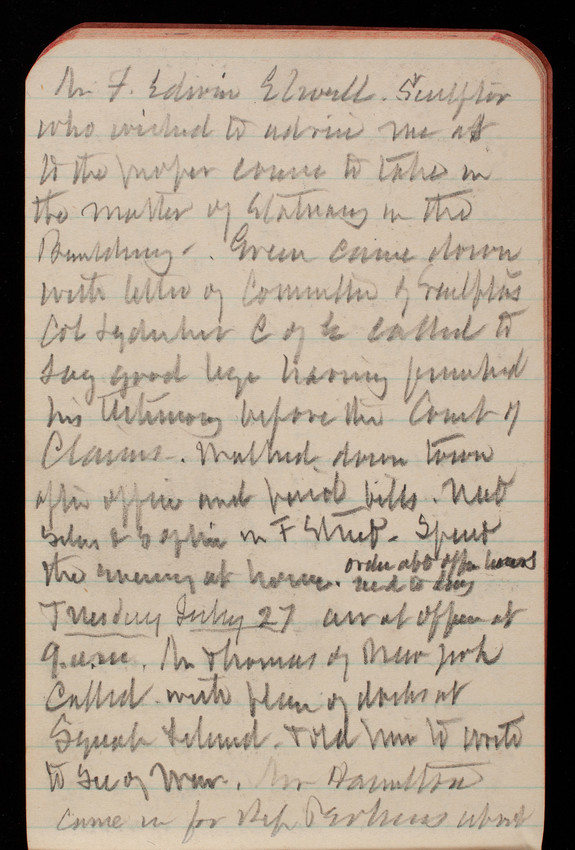 Mr F. Edwin Elwell. Sculptor
who wished to advise me as
to the proper course to take in
the matter of Statuary in the
Building -. Green came down
with letter of Committee of Sculptors
Col C of E called to
say good bye having finished
his testimony before the Court of
Claims. Walked down town
after office and paid bills. Met
in F Street. Spent
the evening at home. order abt office hours
recd to day
Tuesday July 27 arr at office at
9.a.m. Mr Thomas of New York
called with plan of docks at
Island. Told him to write
to Sec of War. Mr Hamilton
came in for Rep Perkins about